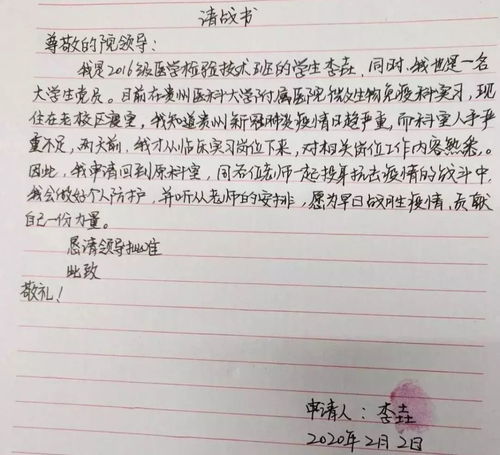 请战书
尊敬的院领导:
我是2016级医学检验技术班的学生李垚,同时,我也是一名
大学生党员。目前在贵州医科大学附属医院微生物免疫科实习,现
住在老校区寝室,我知道贵州新冠肺炎疫情日趋严重,而科室人手严
重不足,两天前,我才从临床实习岗位下来,对相关岗位工作内容熟悉。
因此,我申请回到原科室,同各位老师一起投身抗击疫情的战斗中,
我会做好个人防护,并听从老师的安排,愿为早日战胜疫情,贡献
自己一份力量。
恳请领导批准
此致
敬礼!
申请人:李垚
2020年2月2日